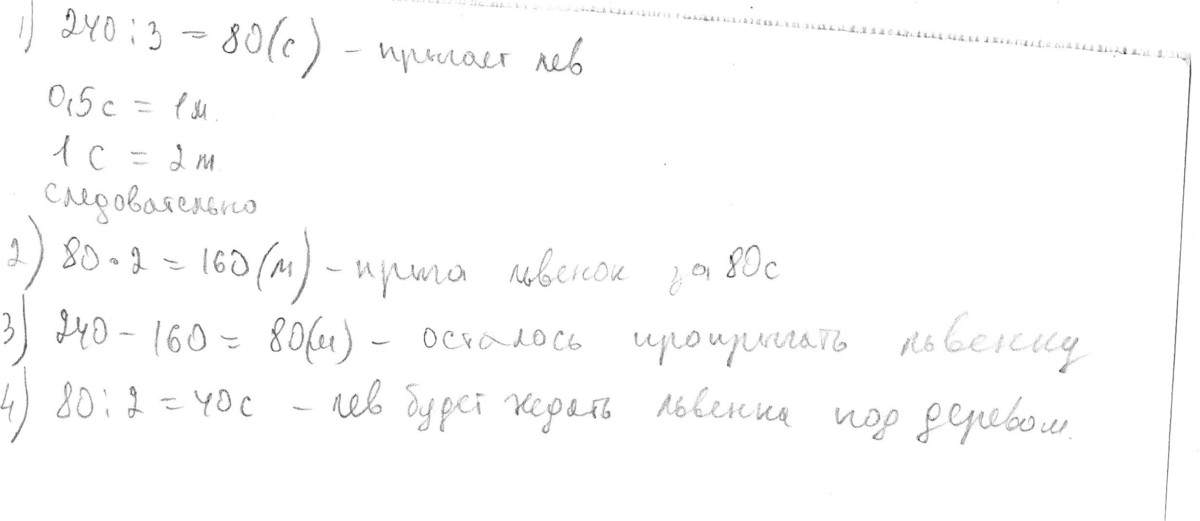 1) 240 : 3 = 80(с) - прыгает лев
0,5с = 1м.
1 с = 2м
следовательно
2) 80 • 2 = 160(м) - прыга львенок за 80с
3) 240 - 160 = 80(м) - осталось пропрыгать львенку
4) 80 : 2 = 40с - лев будет ждать львенка под деревом.